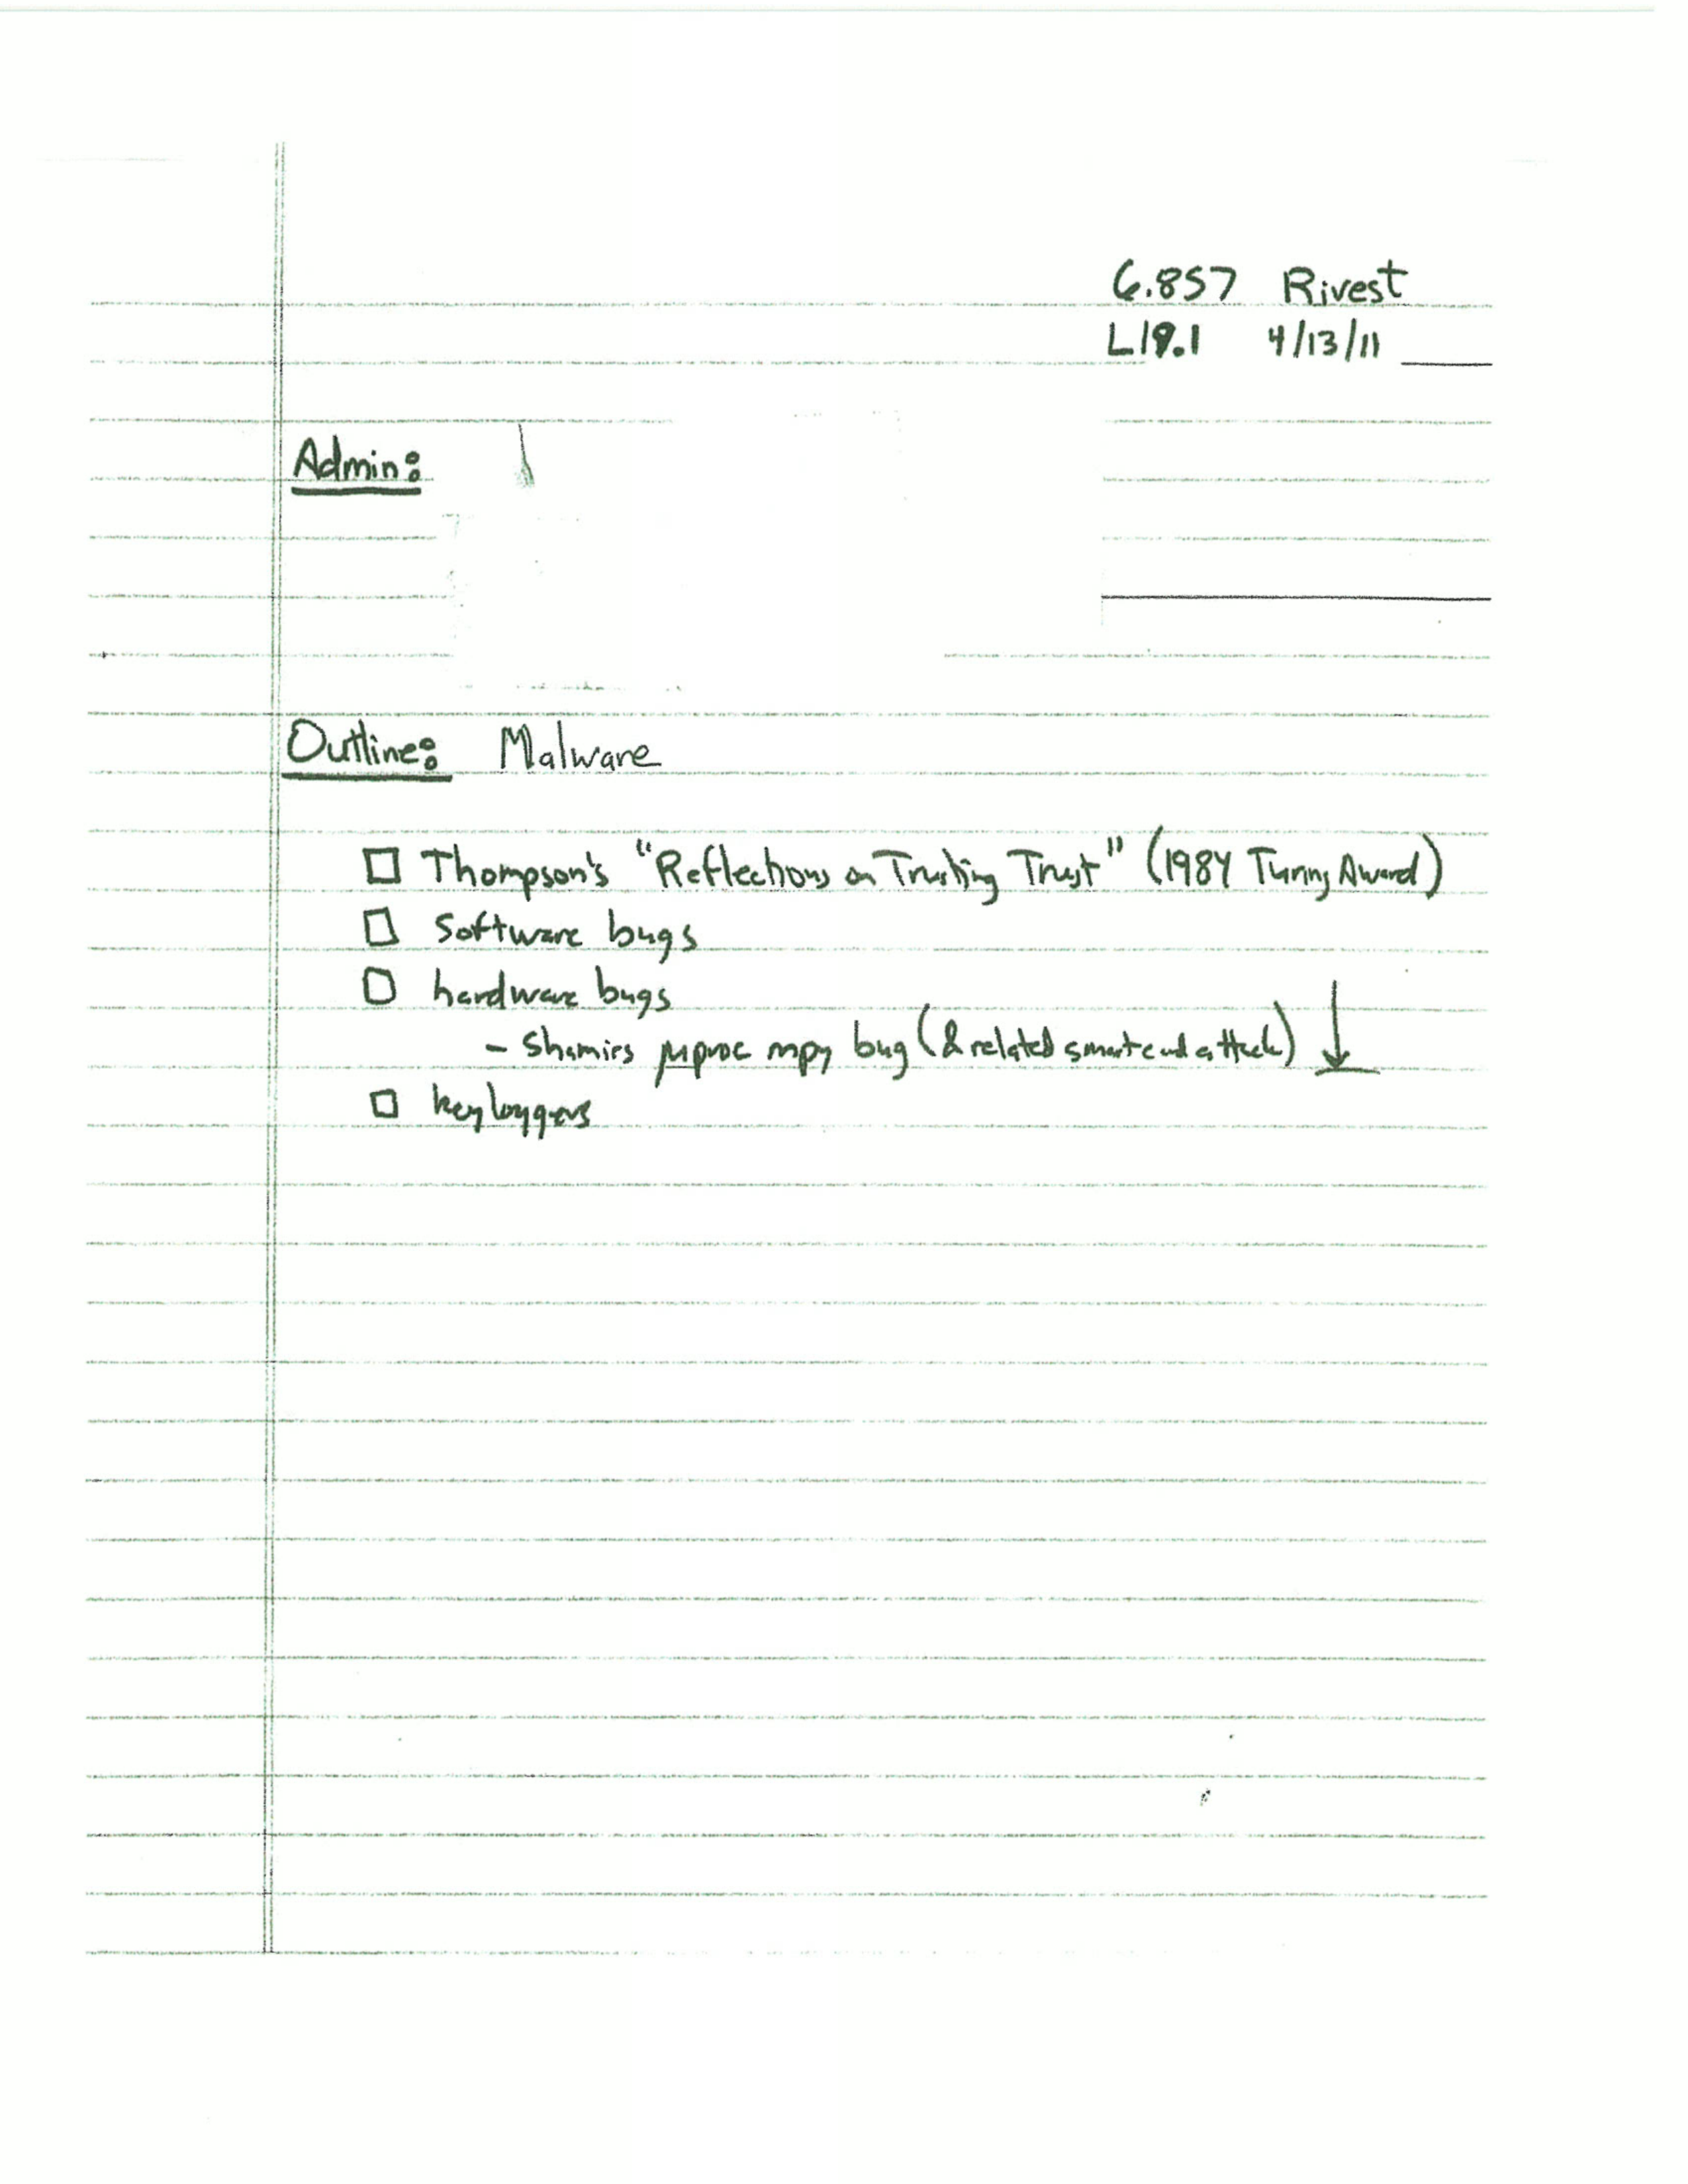 6.857 Rivest
L19.1 4/13/11
Admin:
Outline: Malware
□ Thompson's "Reflections on Trusting Trust" (1984 Turing Award)
□ Software bugs
□ hardware bugs
- Shamirs μproc mpy bug (& related smartcard attack) ↓
□ keyloggers